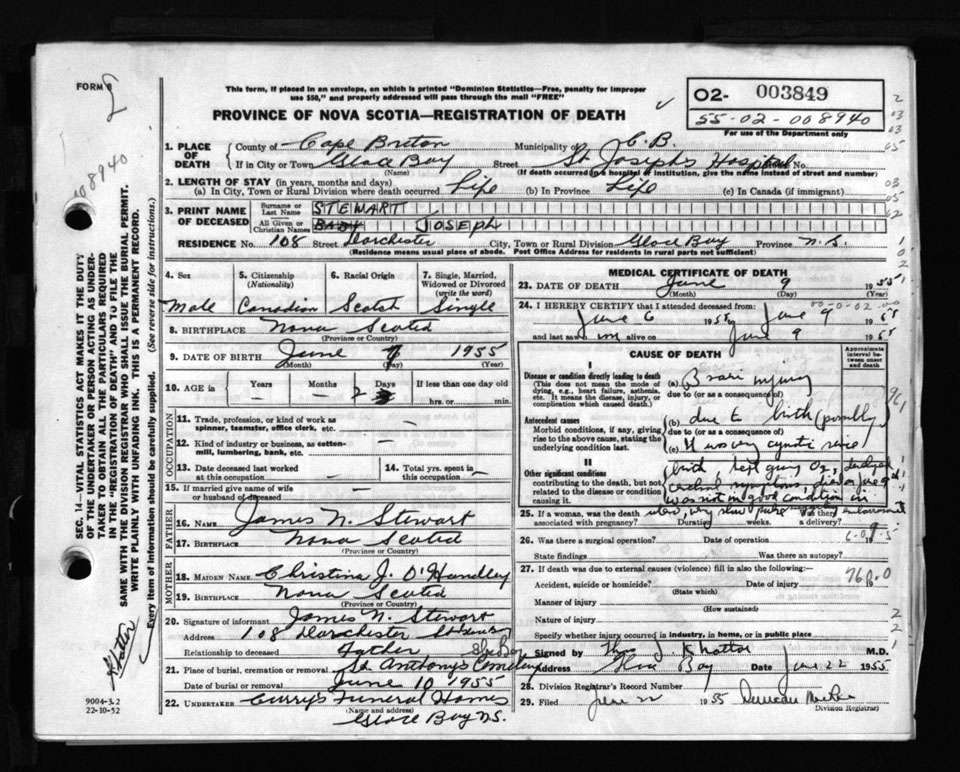 FORM 8
This form, if placed in an envelope, on which is printed "Dominion Statistics—Free, penalty for improper
use $50," and properly addressed will pass through the mail "FREE"
PROVINCE OF NOVA SCOTIA—REGISTRATION OF DEATH
O2- 003849
55-02-008940
For use of the Department only
8940
SEC. 14—VITAL STATISTICS ACT MAKES IT THE DUTY
OF THE UNDERTAKER OR PERSON ACTING AS UNDER-
TAKER TO OBTAIN ALL THE PARTICULARS REQUIRED
IN THE "REGISTRATION OF DEATH" AND TO FILE THE
SAME WITH THE DIVISION REGISTRAR WHO SHALL ISSUE THE BURIAL PERMIT.
WRITE PLAINLY WITH UNFADING INK. THIS IS A PERMANENT RECORD.
Every item of information should be carefully supplied. (See reverse side for instructions.)
1. PLACE OF DEATH
County of Cape Breton Municipality of C.B.
If in City or Town Glace Bay Street St Joseph's Hospital No.
(Name) (If death occurred in a hospital or institution, give the name instead of street and number)
2. LENGTH OF STAY (in years, months and days)
(a) In City, Town or Rural Division where death occurred Life (b) In Province Life (c) In Canada (if immigrant)
3. PRINT NAME OF DECEASED
Surname or Last Name STEWART
All Given or Christian Names BABY JOSEPH
RESIDENCE No. 108 Street Dorchester City, Town or Rural Division Glace Bay Province N.S.
(Residence means usual place of abode. Post Office Address for residents in rural parts not sufficient)
4. Sex Male
5. Citizenship (Nationality) Canadian
6. Racial Origin Scotch
7. Single, Married, Widowed or Divorced (write the word) Single
8. BIRTHPLACE Nova Scotia
(Province or Country)
9. DATE OF BIRTH June 1955
(Month) (Day) (Year)
10. AGE in Years Months Days If less than one day old
— — 2 hrs. or min.
OCCUPATION
11. Trade, profession, or kind of work as
spinner, teamster, office clerk, etc. —
12. Kind of industry or business, as cotton-
mill, lumbering, bank, etc. —
13. Date deceased last worked
at this occupation —
14. Total yrs. spent in
this occupation —
15. If married give name of wife
or husband of deceased —
FATHER
16. NAME James N. Stewart
17. BIRTHPLACE Nova Scotia
(Province or Country)
MOTHER
18. MAIDEN NAME Christina J. O'Handley
19. BIRTHPLACE Nova Scotia
(Province or Country)
20. Signature of informant James N. Stewart
Address 108 Dorchester St Glace Bay
Relationship to deceased Father
21. Place of burial, cremation or removal St Anthony's Cemetery
Date of burial or removal June 10 1955
22. UNDERTAKER Curry's Funeral Home
(Name and address)
Glace Bay N.S.
9004-3.2
22-10-52
MEDICAL CERTIFICATE OF DEATH
23. DATE OF DEATH June 9 1955
(Month) (Day) (Year)
24. I HEREBY CERTIFY that I attended deceased from:
June 6 1955 June 9 1955
and last saw im alive on June 9 1955
CAUSE OF DEATH
Approximate interval between onset and death
I
Disease or condition directly leading to death
(This does not mean the mode of
dying, e.g., heart failure, asthenia,
etc. It means the disease, injury, or
complication which caused death.)
(a) Brain injury
due to (or as a consequence of)
Antecedent causes
Morbid conditions, if any, giving
rise to the above cause, stating the
underlying condition last.
(b) due to birth (possibly
due to (or as a consequence of)
(c) It was very cyanotic since
II
Other significant conditions
contributing to the death, but not
related to the disease or condition
causing it.
birth, kept giving O2, developed
cerebral symptoms
was not in good condition in
utero, very slow pulse
25. If a woman, was the death Was there
associated with pregnancy? Duration weeks. a delivery?
26. Was there a surgical operation? Date of operation
State findings Was there an autopsy?
27. If death was due to external causes (violence) fill in also the following:—
Accident, suicide or homicide? Date of injury 19
(State which)
760.0
Manner of injury
(How sustained)
Nature of injury
Specify whether injury occurred in industry, in home, or in public place
Signed by Thos J. Khattar M.D.
Address Glace Bay Date June 22 1955
28. Division Registrar's Record Number
29. Filed June 22 1955 Duncan
Division Registrar